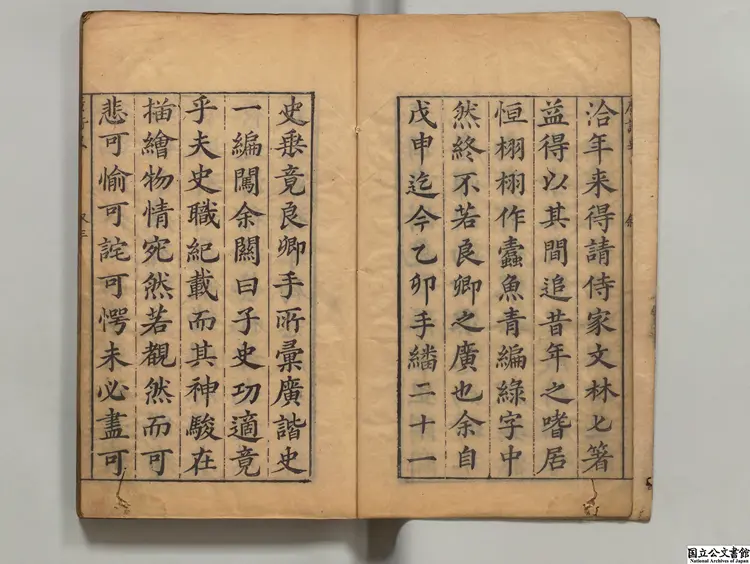 洽年来得請侍家文林匕箸
益得以其間追昔年之嗜居
恒栩栩作蠹魚青編綠字中
然終不若良卿之廣也余自
戊申迄今乙卯手繙二十一
史乘竟良卿手所彙廣諧史
一編闖余關曰子史功適竟
乎夫史職紀載而其神駿在
描繪物情宛然若覩然而可
悲可愉可詫可愕未必盡可
国立公文書館
National Archives of Japan